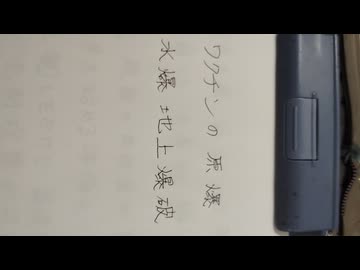 ワクチンの原爆
水爆地上爆破